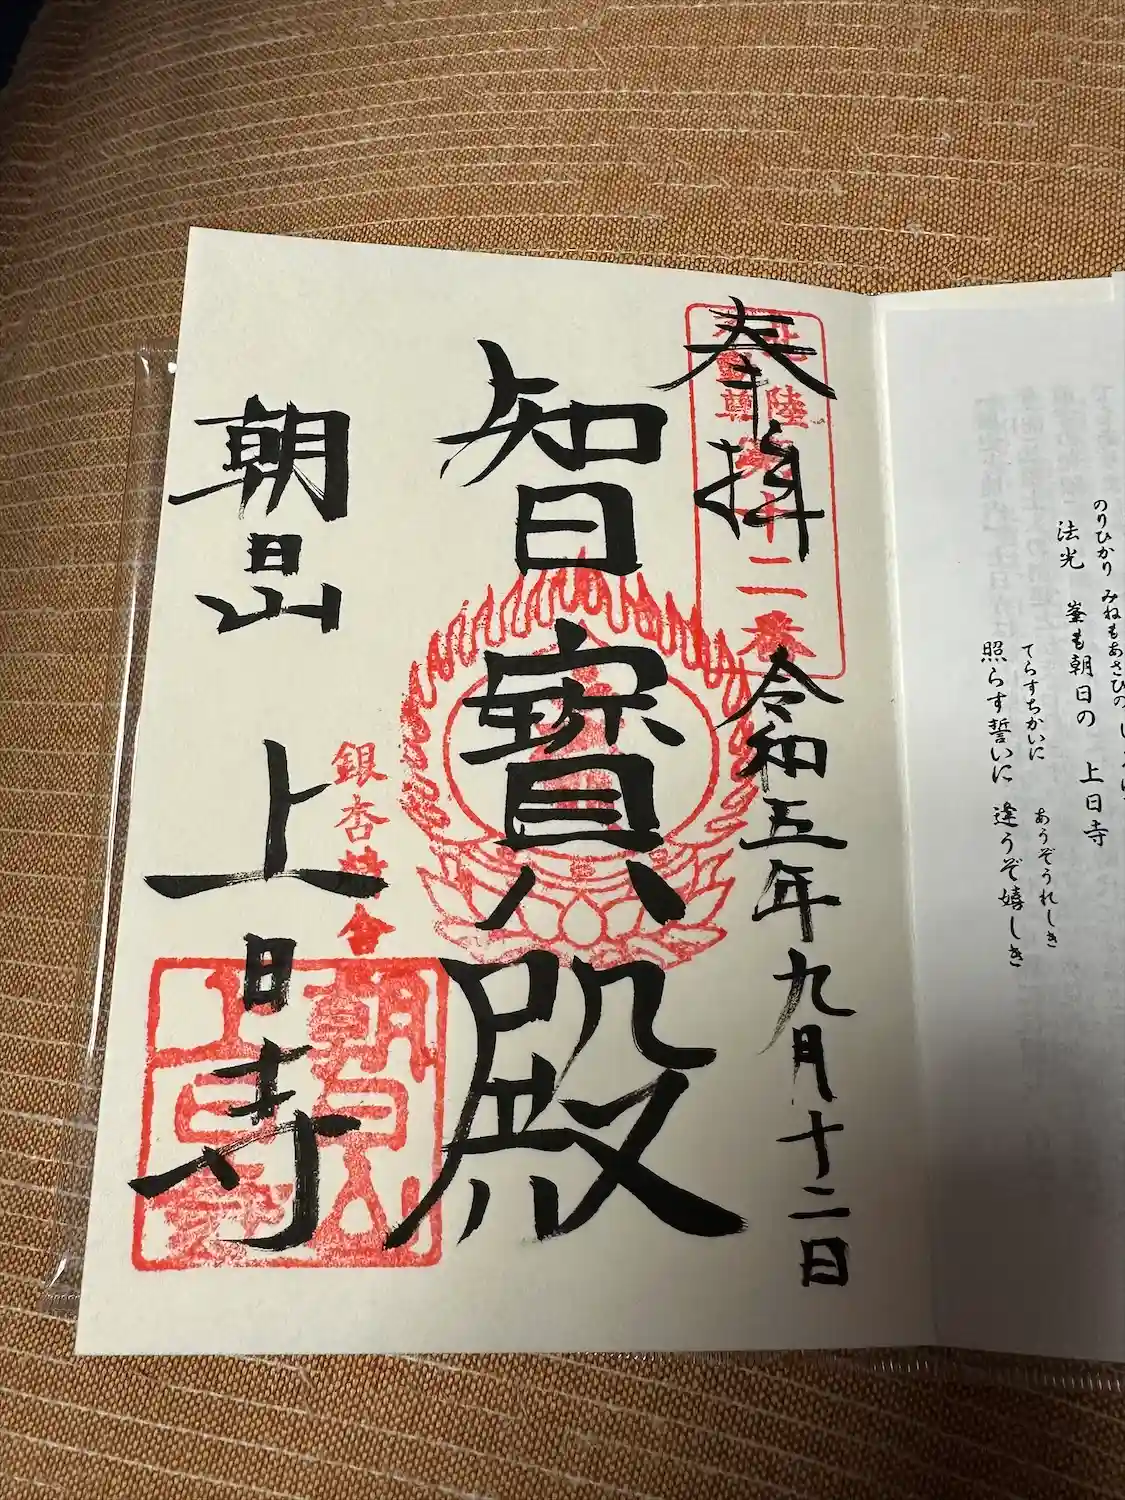 のりひかり みねもあさひの
法光 峯も朝日の 上日寺
てらすちかいに あうぞうれしき
照らす誓いに 逢うぞ嬉しき
奉拝 令和五年九月十二日
北陸
不動尊
第十二番
智寶殿
銀杏精舎
朝日山 上日寺
朝日山
上日寺